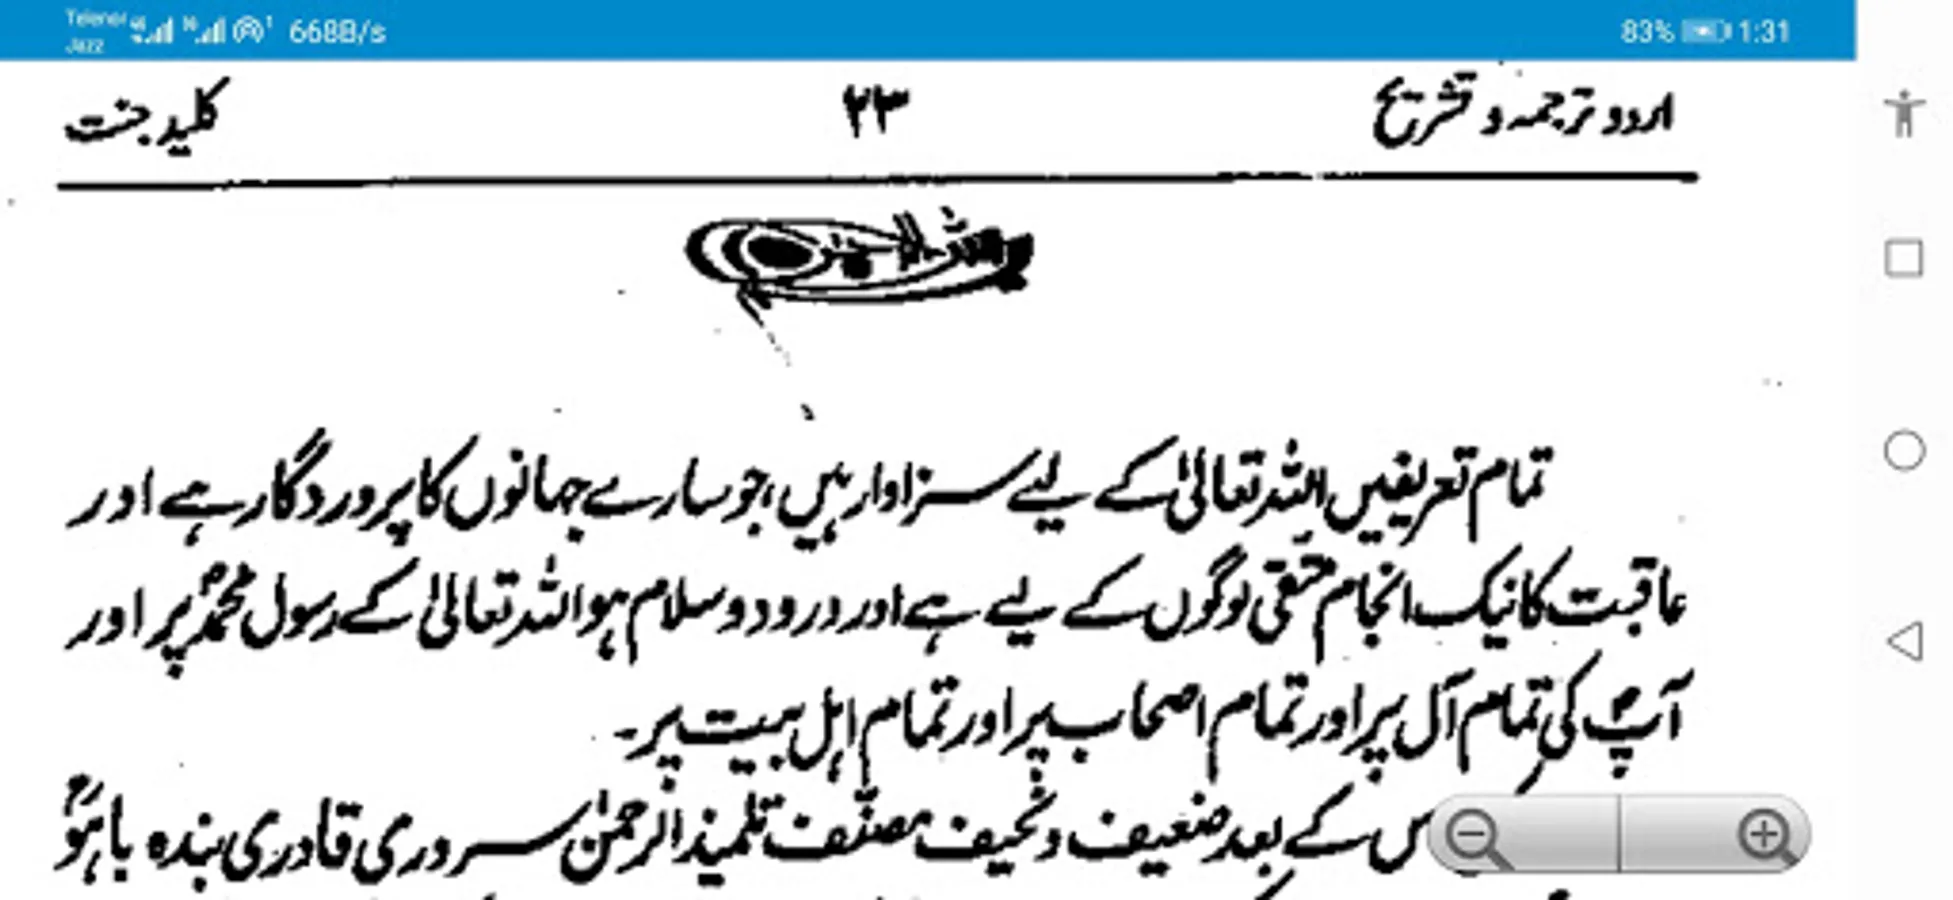 Telenor
Jazz
668B/s
83%
1:31
اردو ترجمہ و تشریح
۲۳
کلید جنت
تمام تعریفیں اللہ تعالیٰ کے لیے سزاوار ہیں، جو سارے جہانوں کا پروردگار ہے اور
عاقبت کا نیک انجام متقی لوگوں کے لیے ہے اور درود و سلام ہو اللہ تعالیٰ کے رسول محمدؐ پر اور
آپؐ کی تمام آل پر اور تمام اصحاب پر اور تمام اہل بیت پر۔
س کے بعد ضعیف و نحیف مصنّف تلمیذ الرحمٰن سروری قادری بندہ باہُوؒ